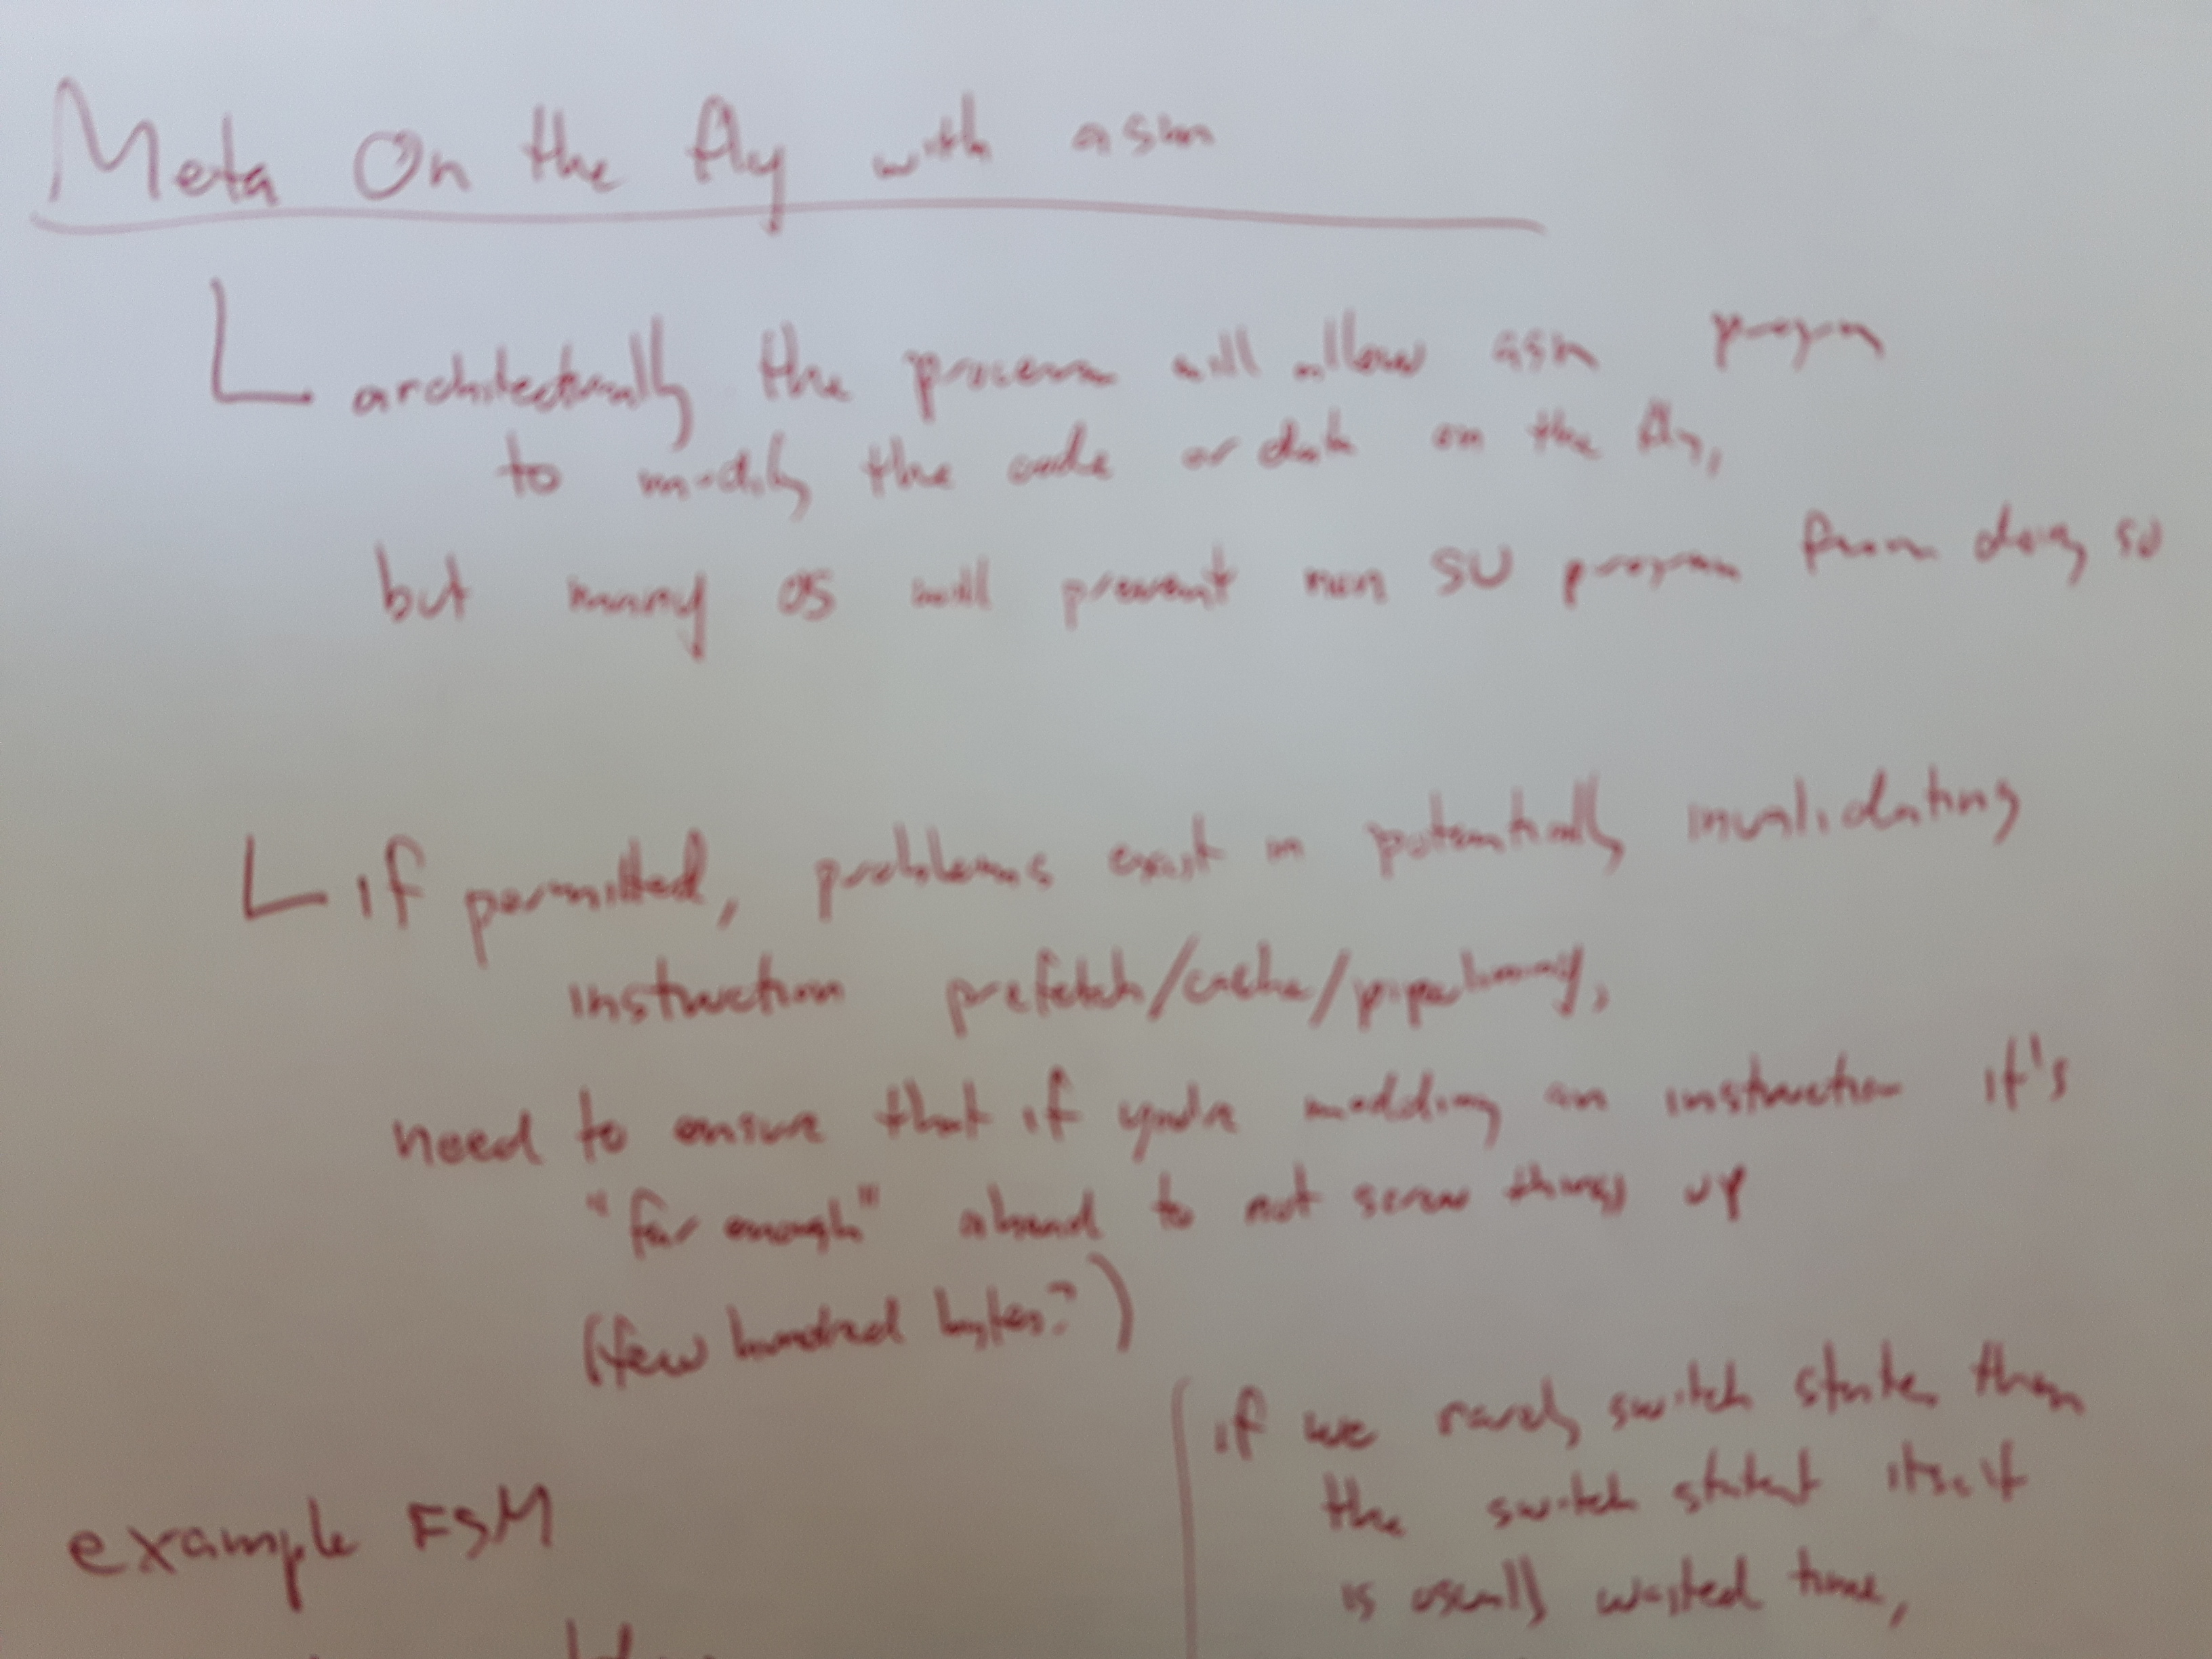 Meta On the fly with asm
architecturally the processor will allow asm program
to modify the code or data on the fly,
but many OS will prevent non SU program from doing so
if permitted, problems exist in potentially invalidating
instruction prefetch/cache/pipelining,
need to ensure that if you're modding an instruction it's
"far enough" ahead to not screw things up
(few hundred bytes?)
example FSM
if we rarely switch states then
the switch statement itself
is usually wasted time,